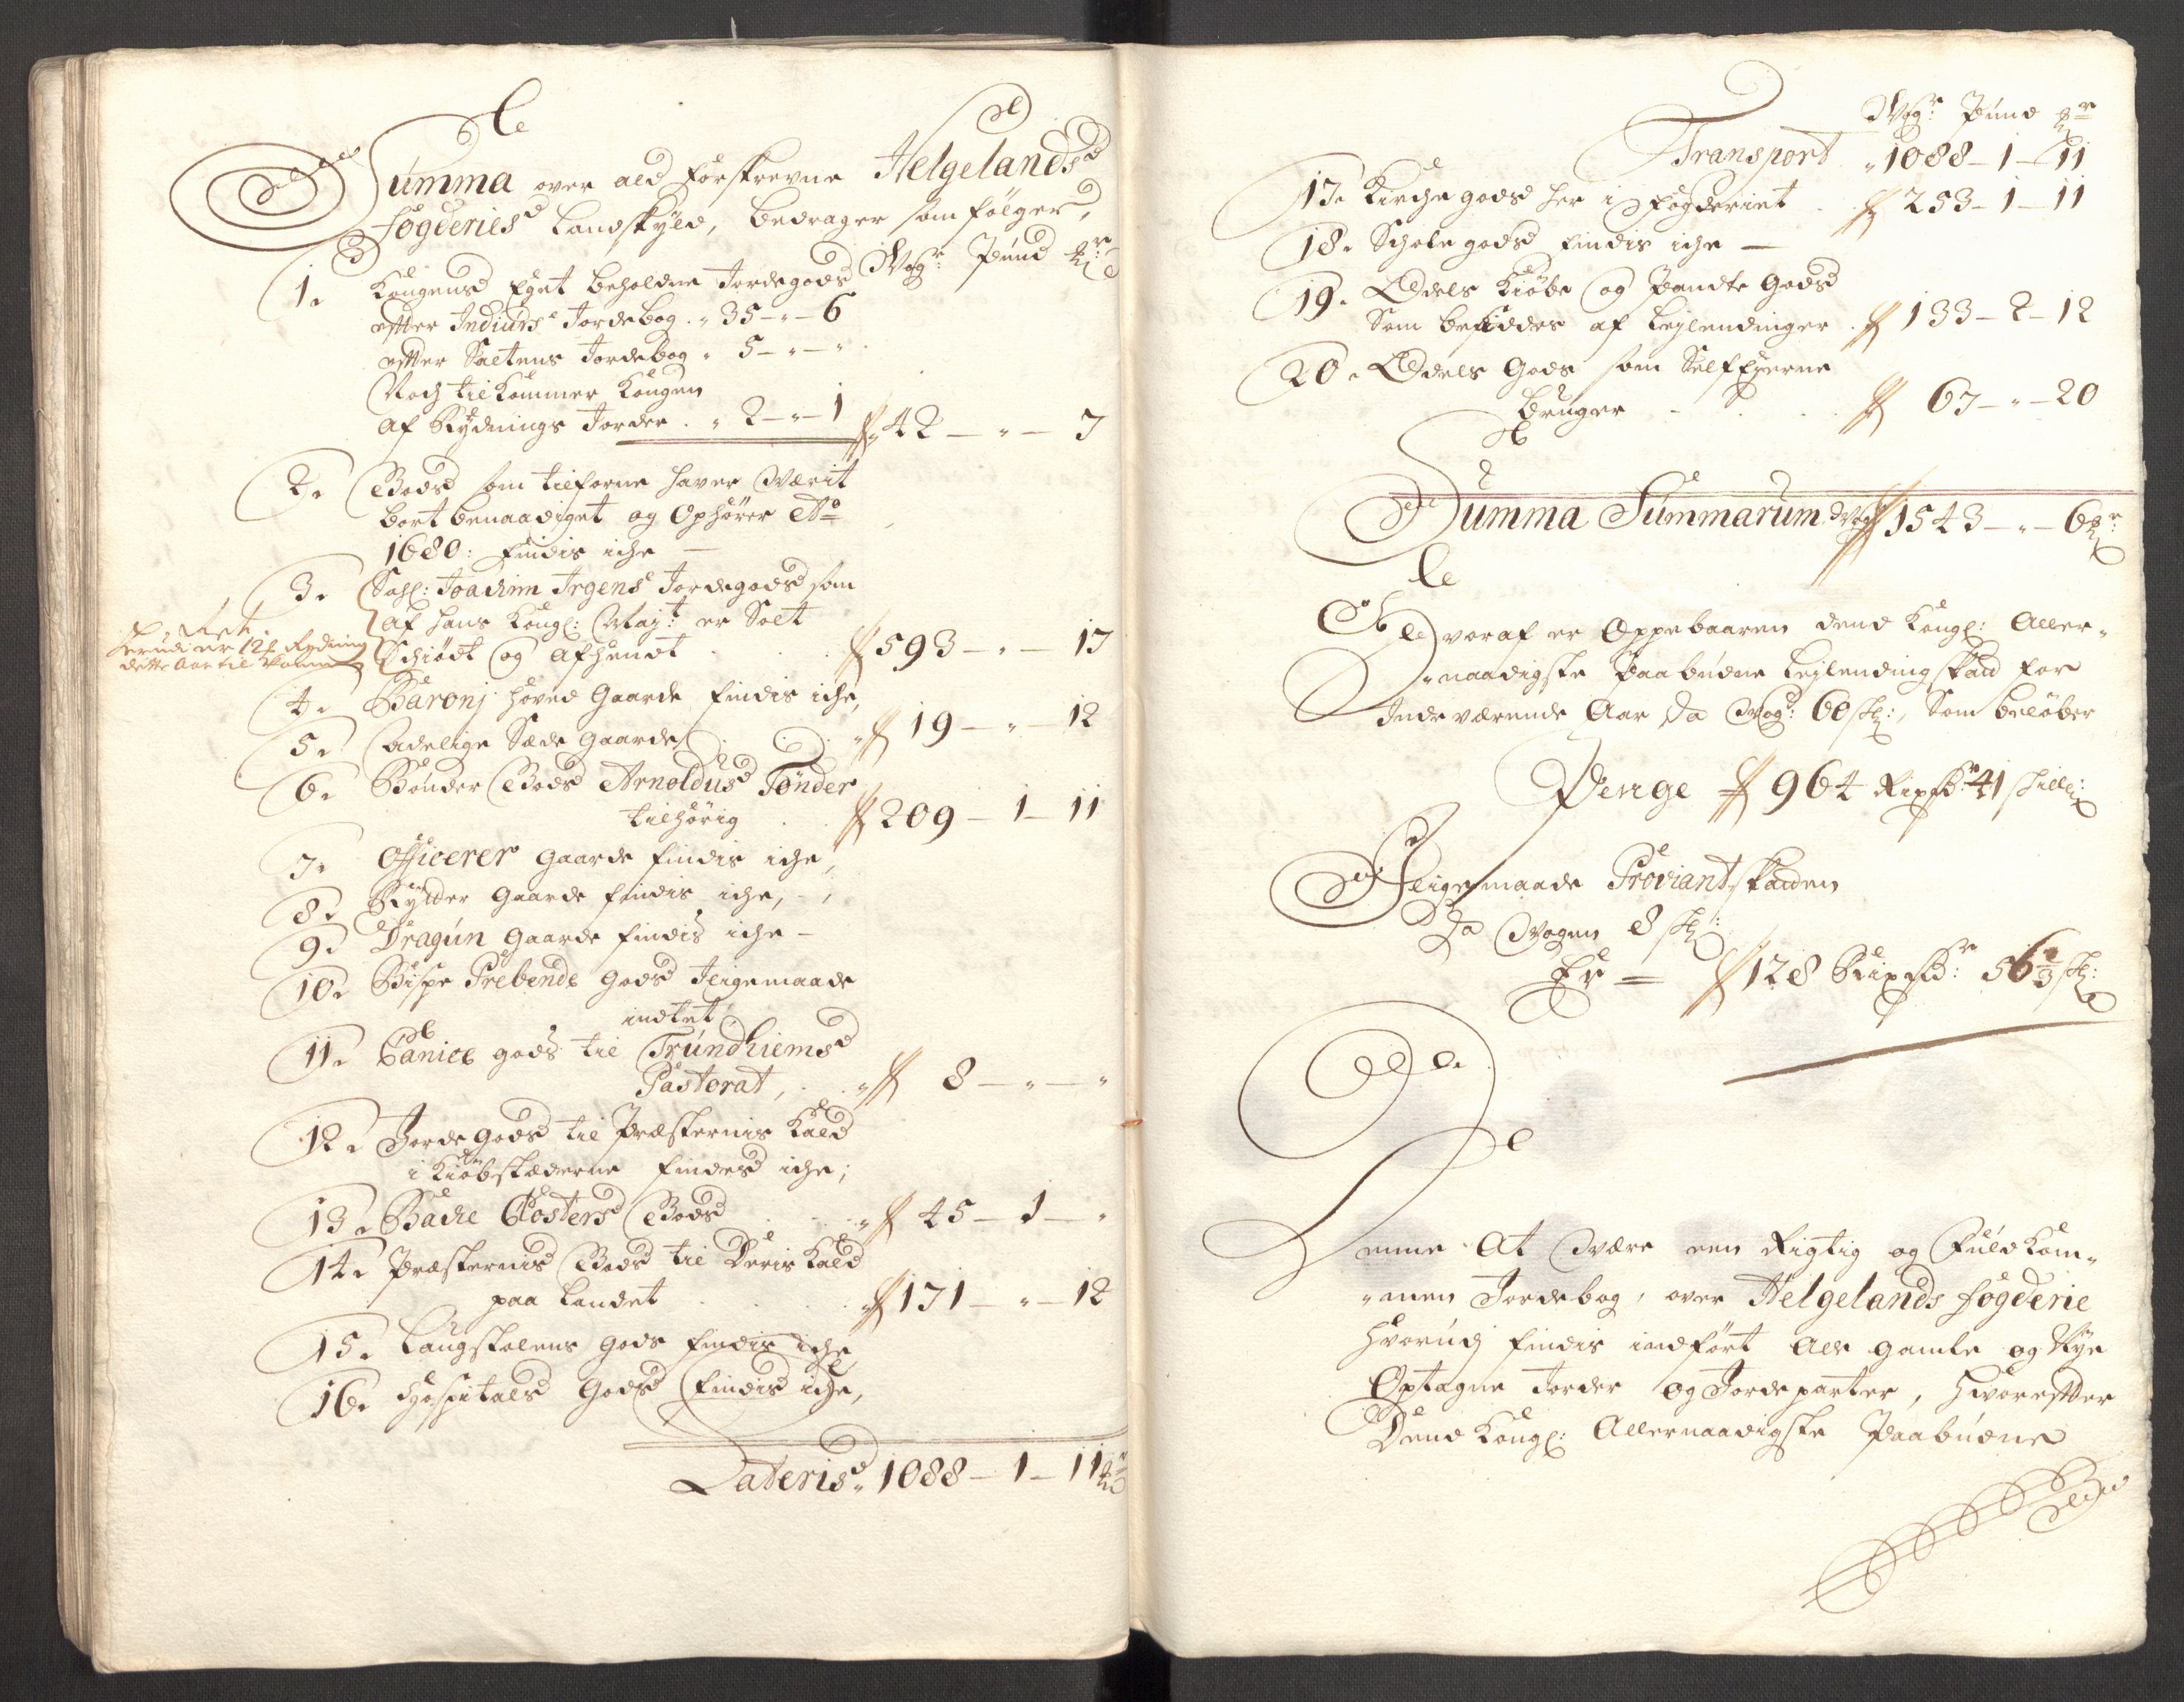 Summa over ald forskrevne Helgelands
fogderies Landskyld, bedrager som følger,
Wog: Pund
1. Kongens Eget beholdne Jordegods
efter Indiurs Jordebog . „ 35 - „ - 6
efter Saltens Jordebog „ 5 - „ - „
Noch tilkommer Kongen
af Rydnings Jorder . „ 2 - „ - 1 42 - „ - 7
2. Gods som tilforne haver Værit
bort benaadiget og Ophører Ao
1680: findis iche -
3. Sahl: Joachim Irgens Jordegods som
af hans Kongl: Mayt: er Solt
Schiødt og afhendt . . . 593 - „ - 17
Ret.
herudi er 12 Rydning
dette Aar til kommen
4. Baronj hoved Gaarde findis iche,
5. Adelige Sæde Gaarde . . . 19 - „ - 12
6. Bønder Gods Arnoldus Tønder
tilhørig . . 209 - 1 - 11
7. Officerer Gaarde findis iche,
8. Rytter Gaarde findis iche,
9. Dragun Gaarde findis iche -
10. Bispe Prebende Gods Ligemaade
indtet
11. Canice gods til Trundhiems
Pastorat, . . 8 - „ - „
12. Jorde Gods til Præsternis Kald
i Kiøbstæderne findes iche;
13. Bache Closters Gods . . . 45 - 1 - „
14. Præsternis Gods til Deris Kald
paa Landet . . . . 171 - „ - 12
15. Laugstolens Gods findis iche,
16. Hospitals Gods findis iche,
Lateris „ 1088 - 1 - 11
Wog: Pund
Transport „ 1088 - 1 - 11
17. Kirche gods her i fogderiet . . 253 - 1 - 11
18. Schole gods findis iche -
19. Odels Kiøbe og Pandte Gods
Som besiddes af Lejlendinger . 133 - 2 - 12
20. Odels Gods som Selfeyerne
bruger - . . . 67 - „ - 20
Summa Summarum Wog 1543 - „ - 6
voraf er Oppebaaren dend Kongl: Aller„
„naadigste Paabudne Lejlendingskatt for
Inde værende Aar Ja Wog: 60 sh:, Som beløber
Penge 964 Rixdr: 41 shill:
Ligemaade Proviantskatten
Ja Wogen 8 sh:
Er = 128 Rixdr: 56 2/3 sh:
Denne At være een Rigtig og fuldkom„
„men Jordebog, over Helgelands fogderie
hvorudj findis indført Alle gamle og Nye
Optagne Jorder og Jordeparter, hvorefter
Dend Kongl: Allernaadigste Paabudne